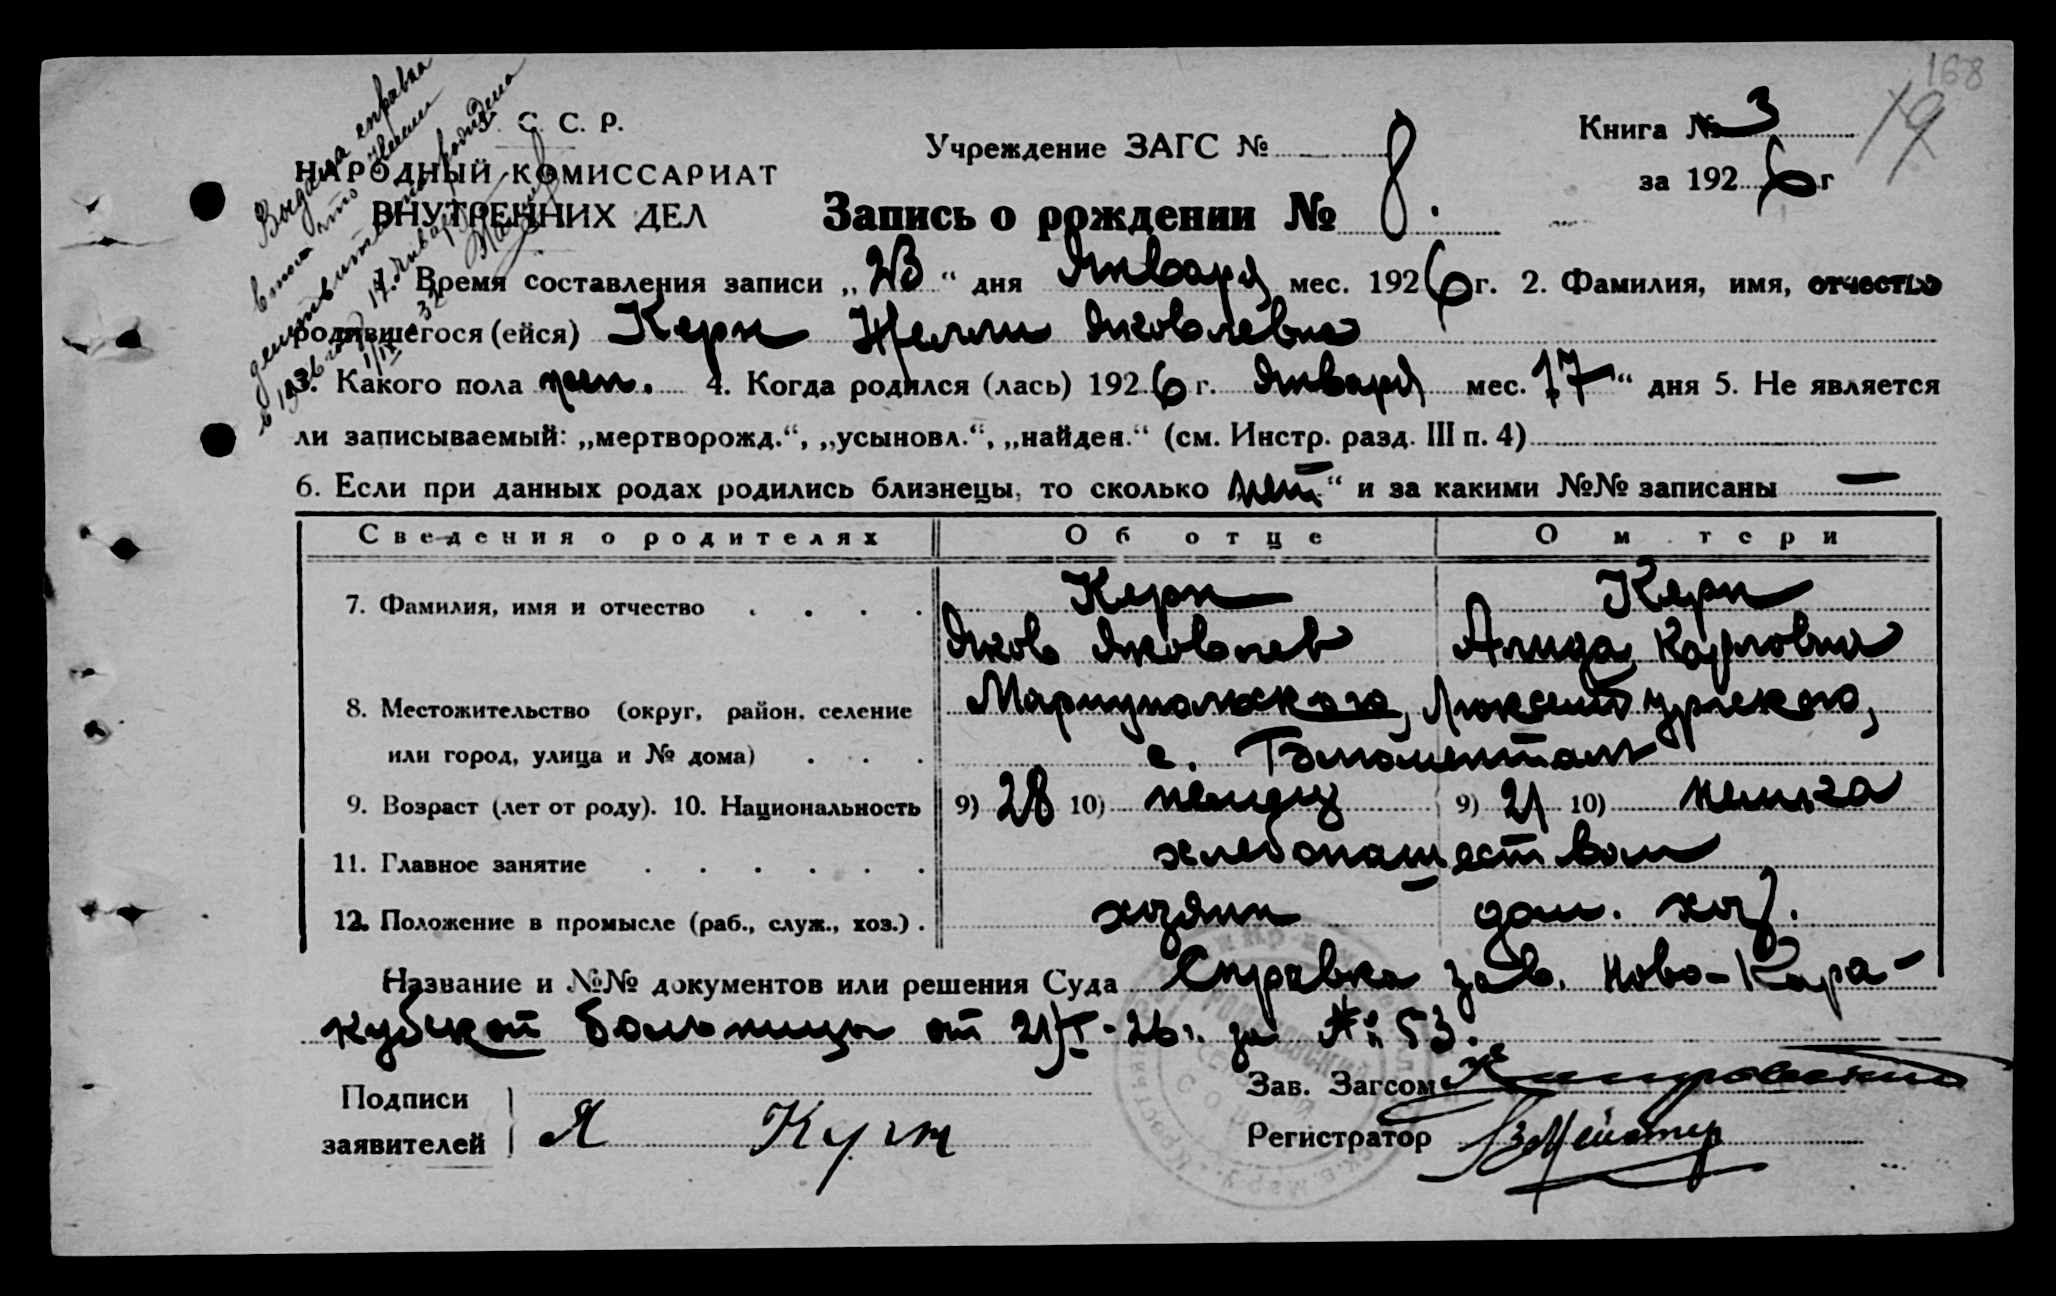 168
19
С. С. Р.
НАРОДНЫЙ КОМИССАРИАТ
ВНУТРЕННИХ ДЕЛ
Учреждение ЗАГС №
Книга № 3
за 1926 г
Запись о рождении № 8.
Выдана справка
в том что
1. Время составления записи „23“ дня Января мес. 1926 г. 2. Фамилия, имя, отчество
родившегося (ейся) Керн Нелли Яковлевна
3. Какого пола жен. 4. Когда родился (лась) 1926 г. Января мес. 17“ дня 5. Не является
ли записываемый: „мертворожд.“, „усыновл.“, „найден.“ (см. Инстр. разд. III п. 4)
6. Если при данных родах родились близнецы, то сколько нет“ и за какими №№ записаны —
Сведения о родителях Об отце О м тери
7. Фамилия, имя и отчество Керн Керн
Яков Яковлев Алида Карловна
8. Местожительство (округ, район, селение Мариупольского, Люксембургского,
или город, улица и № дома) с.
9. Возраст (лет от роду). 10. Национальность 9) 28 10) немец 9) 21 10) немка
11. Главное занятие хлебопашеством
12. Положение в промысле (раб., служ., хоз.) хозяин дом. хоз.
Название и №№ документов или решения Суда Справка зав. Ново-Кара-
кубской больницы от 21/I-26 г. за №: 53.
Подписи
заявителей Я Керн
Зав. Загсом
Регистратор